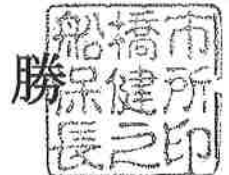 勝
船橋市
保健所
長之印